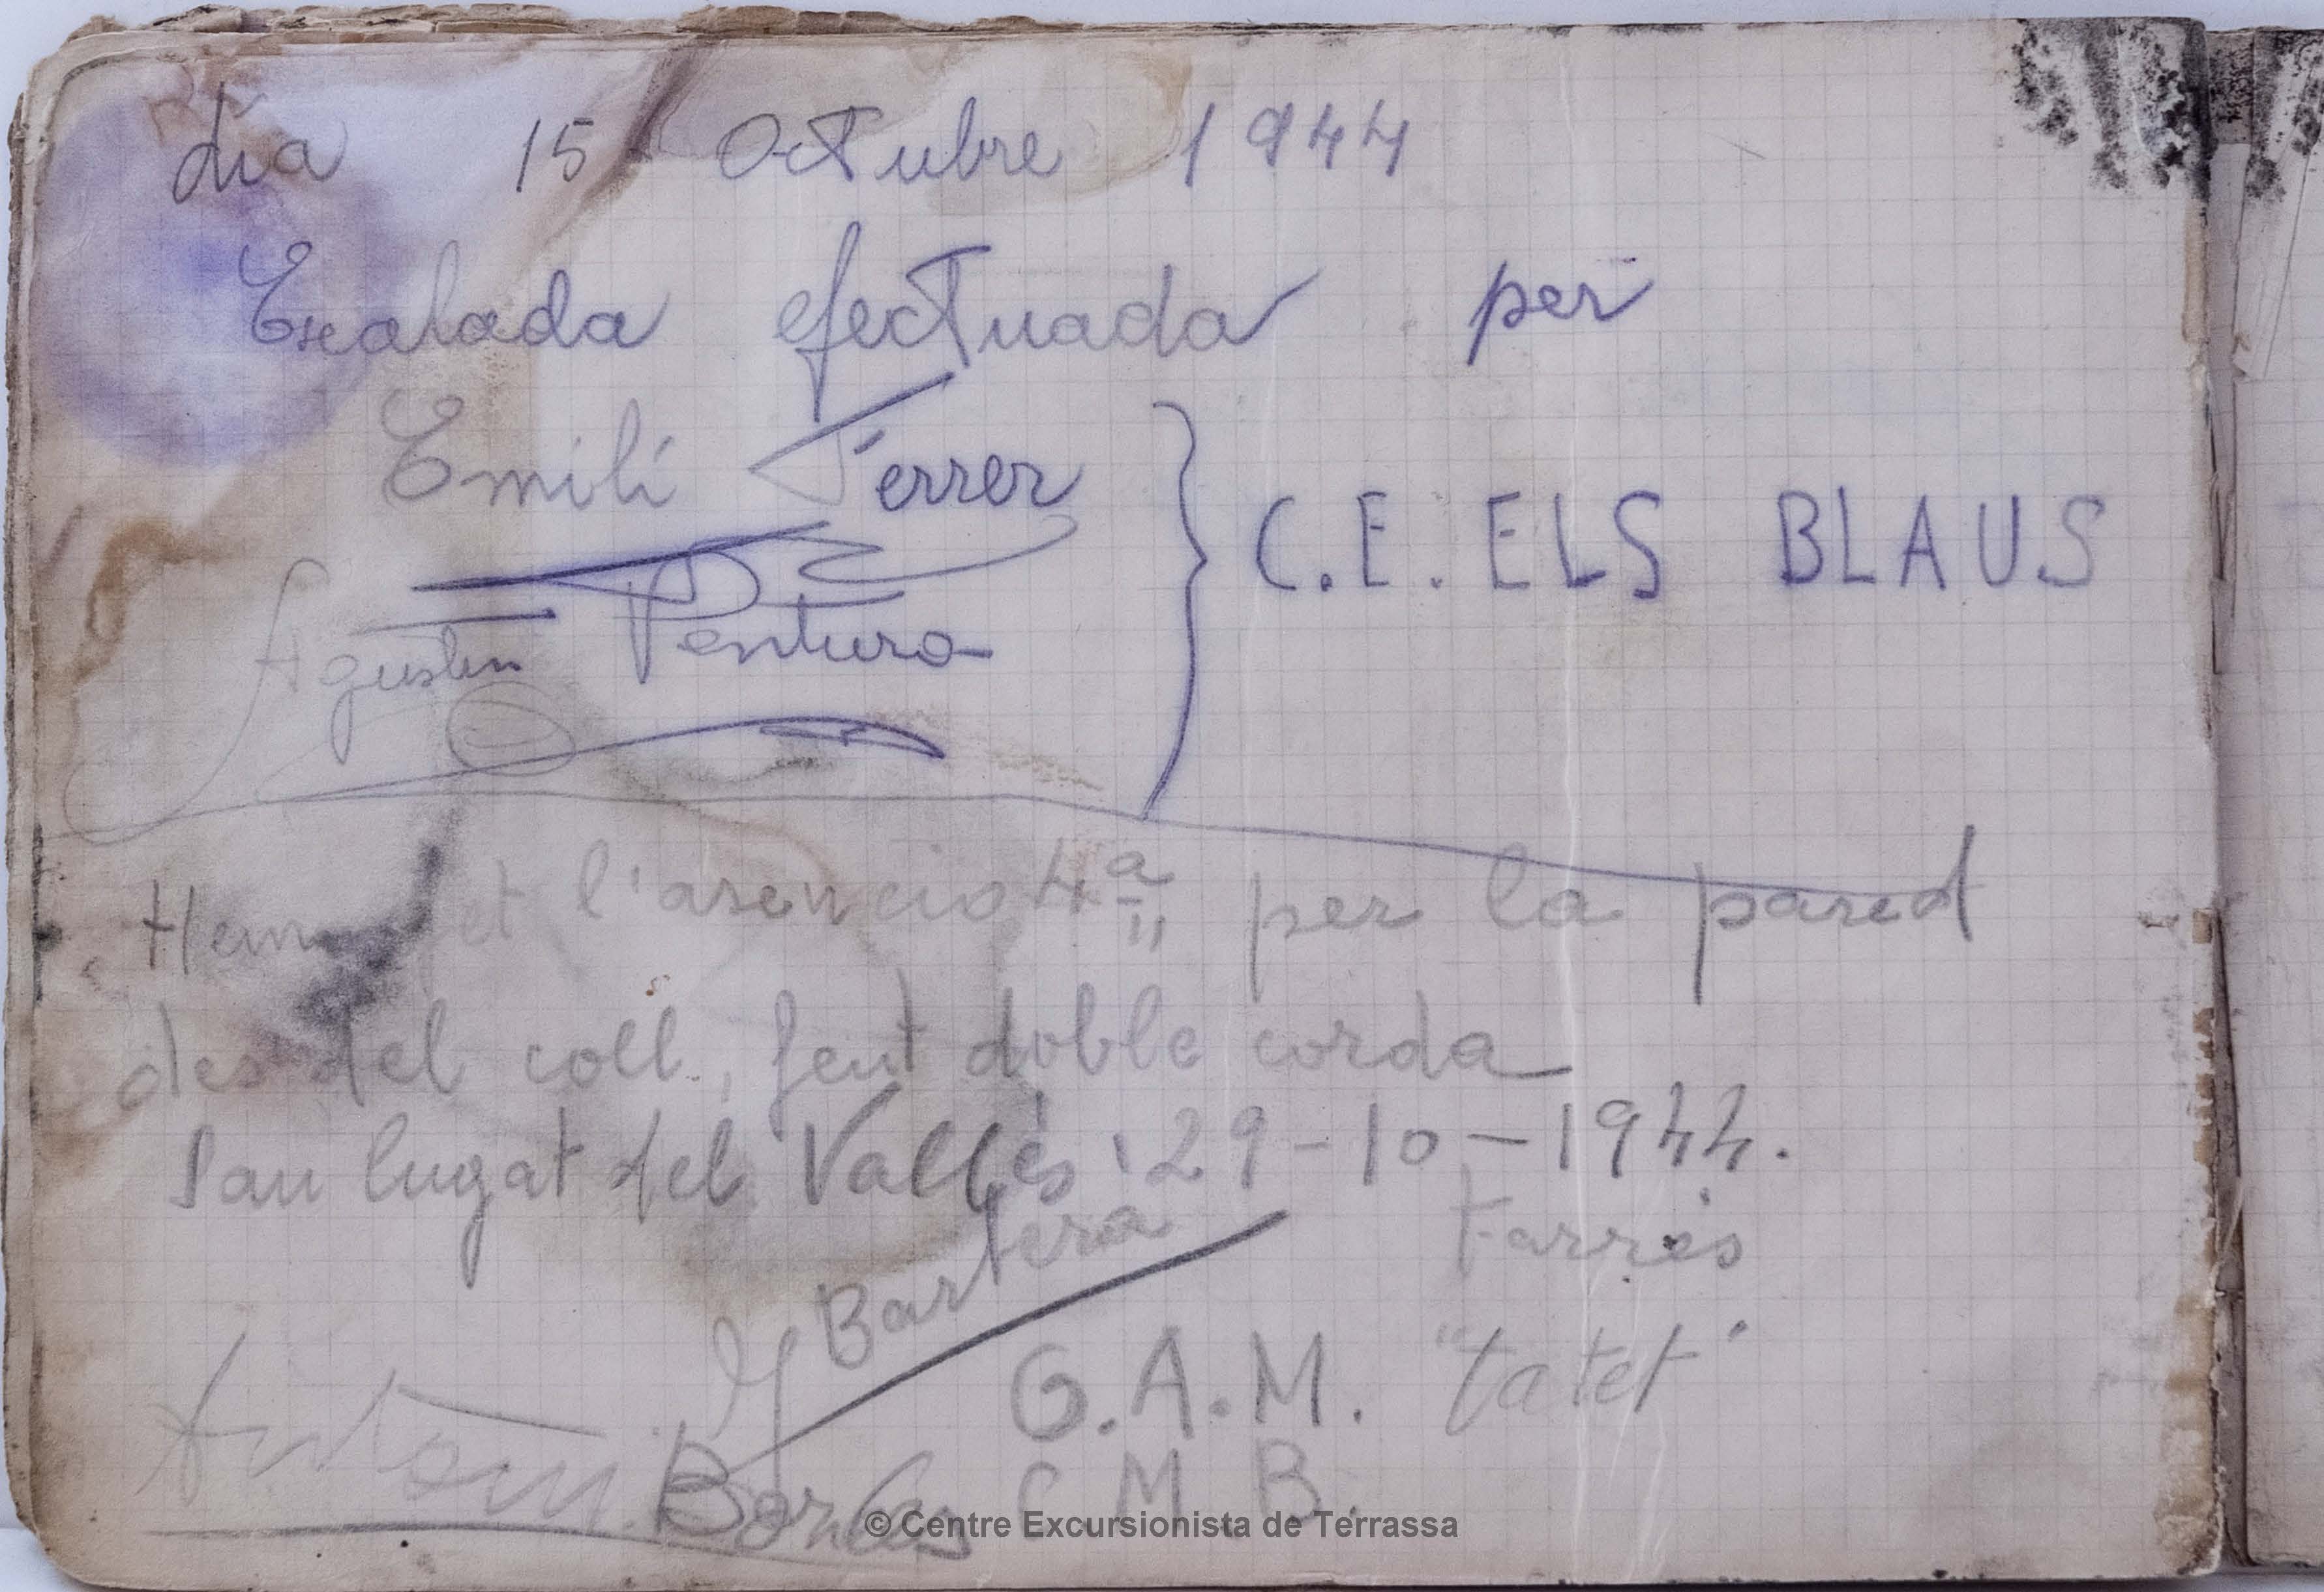 dia 15 Octubre 1944
Escalada efectuada per
Emili Ferrer
Agustin Ventura
C.E. ELS BLAUS
Hem fet l'asenció 4ª per la pared
des del coll, fent doble corda
San Cugat del Vallés 29-10-1944.
J Bartera Farrés
G.A.M. "tatet"
Antoni Borlas C M B.
© Centre Excursionista de Terrassa